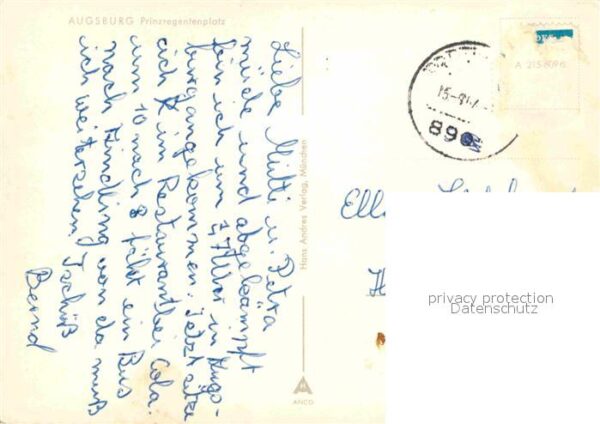 AUGSBURG Prinzregentenplatz
Liebe Mutti u. Petra
müde und abgekämpft
bin ich um 1,7 Uhr in Augs-
burg angekommen. Jetzt sitze
ich im Restaurant bei Cola.
um 10 nach 8 fährt ein Bus
nach Aindling von da muß
ich weitersehen. Tschüß
Bernd
Hans Andres Verlag, München
ANCO
A 215/8096
89
privacy protection
Datenschutz